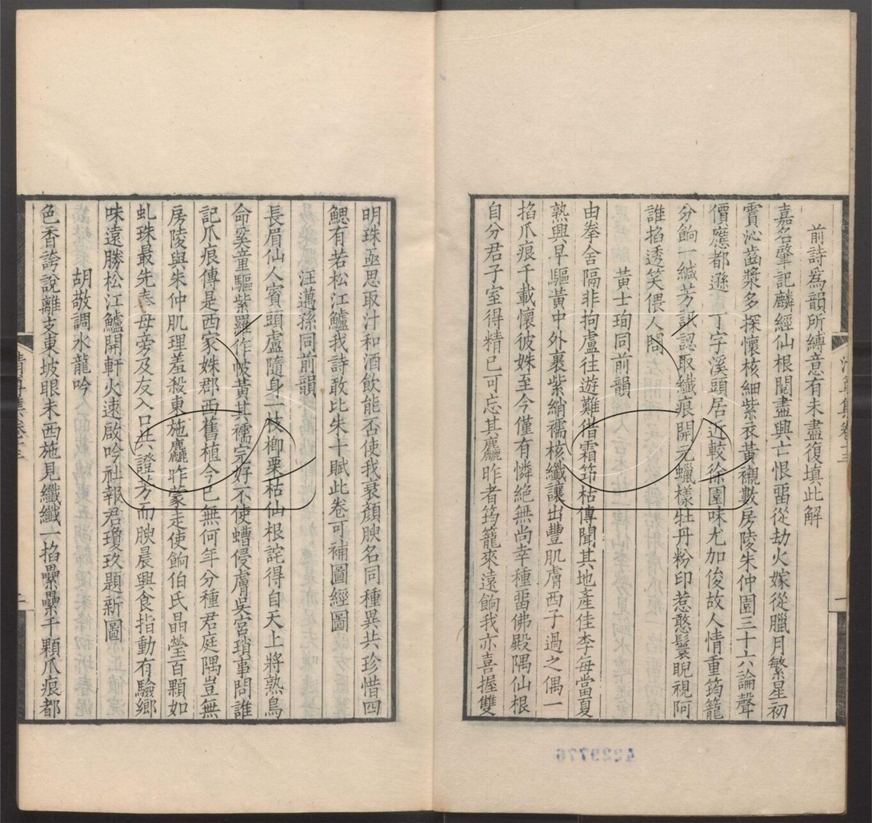 前詩爲韻所縛意有未盡復填此解
嘉名肇記麟經仙根閱盡興亡恨畱從劫火嫁從臘月繁星初
霣沁齒漿多探懷核細紫衣黃襯數房陵朱仲園三十六論聲
價應都遜 丁字溪頭居近較徐園味尤加俊故人情重筠籠
分餉一緘芳訊認取纖痕開元蠟樣牡丹粉印惹憨鬟睨視阿
誰掐透笑偎人問
黃士珣同前韻
由拳舍隔非拘盧往遊難借霜筇枯傳聞其地產佳李每當夏
熟興早驅黃中外裹紫綃襦核纖讓出豐肌膚西子過之偶一
掐爪痕千載懷彼姝至今僅有憐絕無尚幸種畱佛殿隅仙根
自分君子室得精已可忘其麤昨者筠籠來遠餉我亦喜握雙
明珠亟思取汁和酒飲能否使我衰顏腴名同種異共珍惜四
鰓有若松江鱸我詩敢比朱十賦此卷可補圖經圖
汪邁孫同前韻
長眉仙人賓頭盧隨身一枝榔栗枯仙根詫得自天上將熟鳥
命奚童驅紫羅作帔黃其襦完好不使螬侵膚吳宮瑣事問誰
記爪痕傳是西家姝郡西舊種今已無何年分種君庭隅豈無
房陵與朱仲肌理羞殺東施麤昨蒙走使餉伯氏晶瑩百顆如
虬珠最先奉母旁及友入口共證芳而腴晨興食指動有驗鄉
味遠勝松江鱸開軒火速啟吟社報君瓊玖題新圖
胡敬調水龍吟
色香誇說離支東坡眼未西施見纖纖一掐纍纍千顆爪痕都
4229776